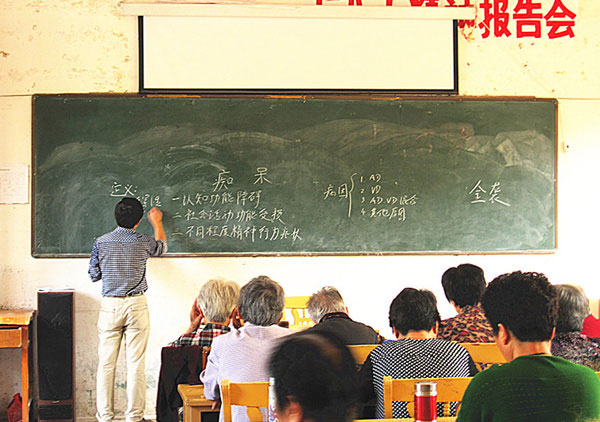 报告会
痴呆
定义:
一认知功能障碍
二社会活动功能受损
三不同程度精神行为症状
病因
1. AD
2. VD
3 AD VD混合
4. 其他原因
全袭